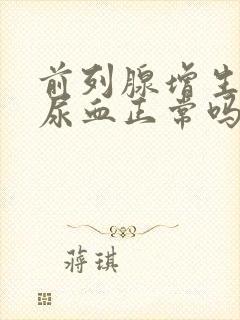 前列腺增生
尿血正常吗
蒋琪